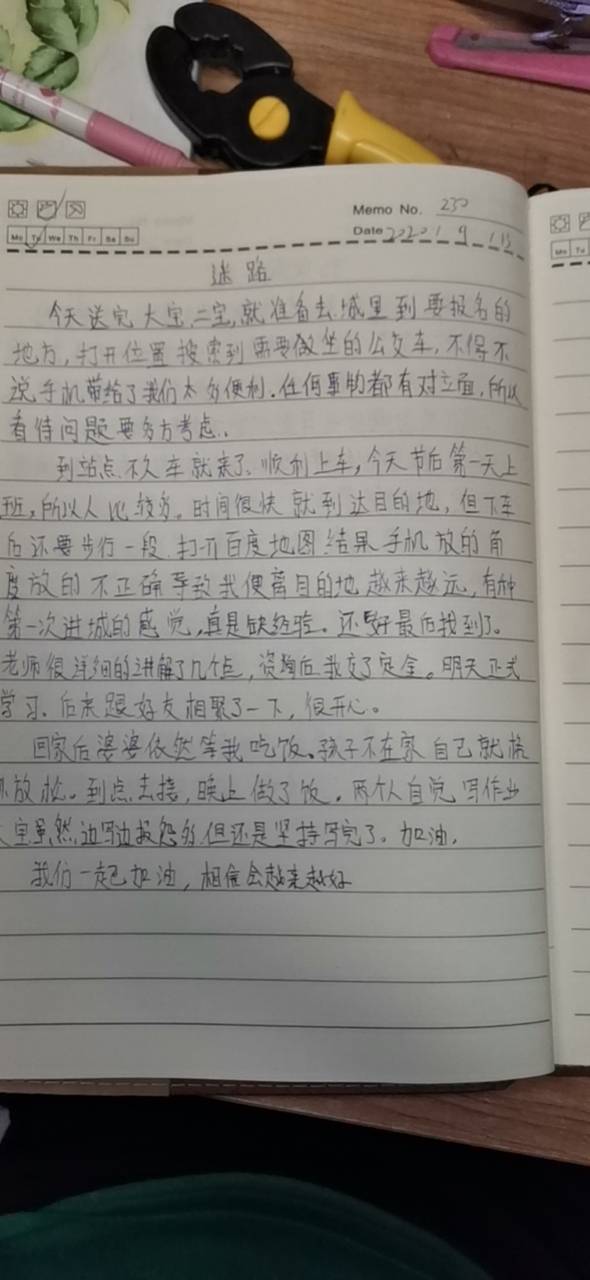 Memo No. 230
Mo Tu We Th Fr Sa Su
Date
迷路
今天送完大宝、二宝,就准备去城里到要报名的
地方,打开位置搜索到需要做坐的公交车,不得不
说手机带给了我们太多便利.任何事物都有对立面,所以
看待问题要多方考虑.
到站点不久车就来了.顺利上车,今天节后第一天上
班,所以人比较多。时间很快就到达目的地,但下车
后还要步行一段.打开百度地图结果手机放的角
度放的不正确导致我便离目的地越来越远,有种
第一次进城的感觉,真是缺经验。还好最后找到了。
老师很详细的讲解了几个点,资询后我交了定金。明天正式
学习.后来跟好友相聚了一下,很开心。
回家后婆婆依然等我吃饭。孩子不在家自己就格
外放松。到点去接,晚上做了饭.两个人自觉写作业
大宝虽然边写边报怨多但还是坚持写完了.加油.
我们一起加油,相信会越来越好
Mo Tu